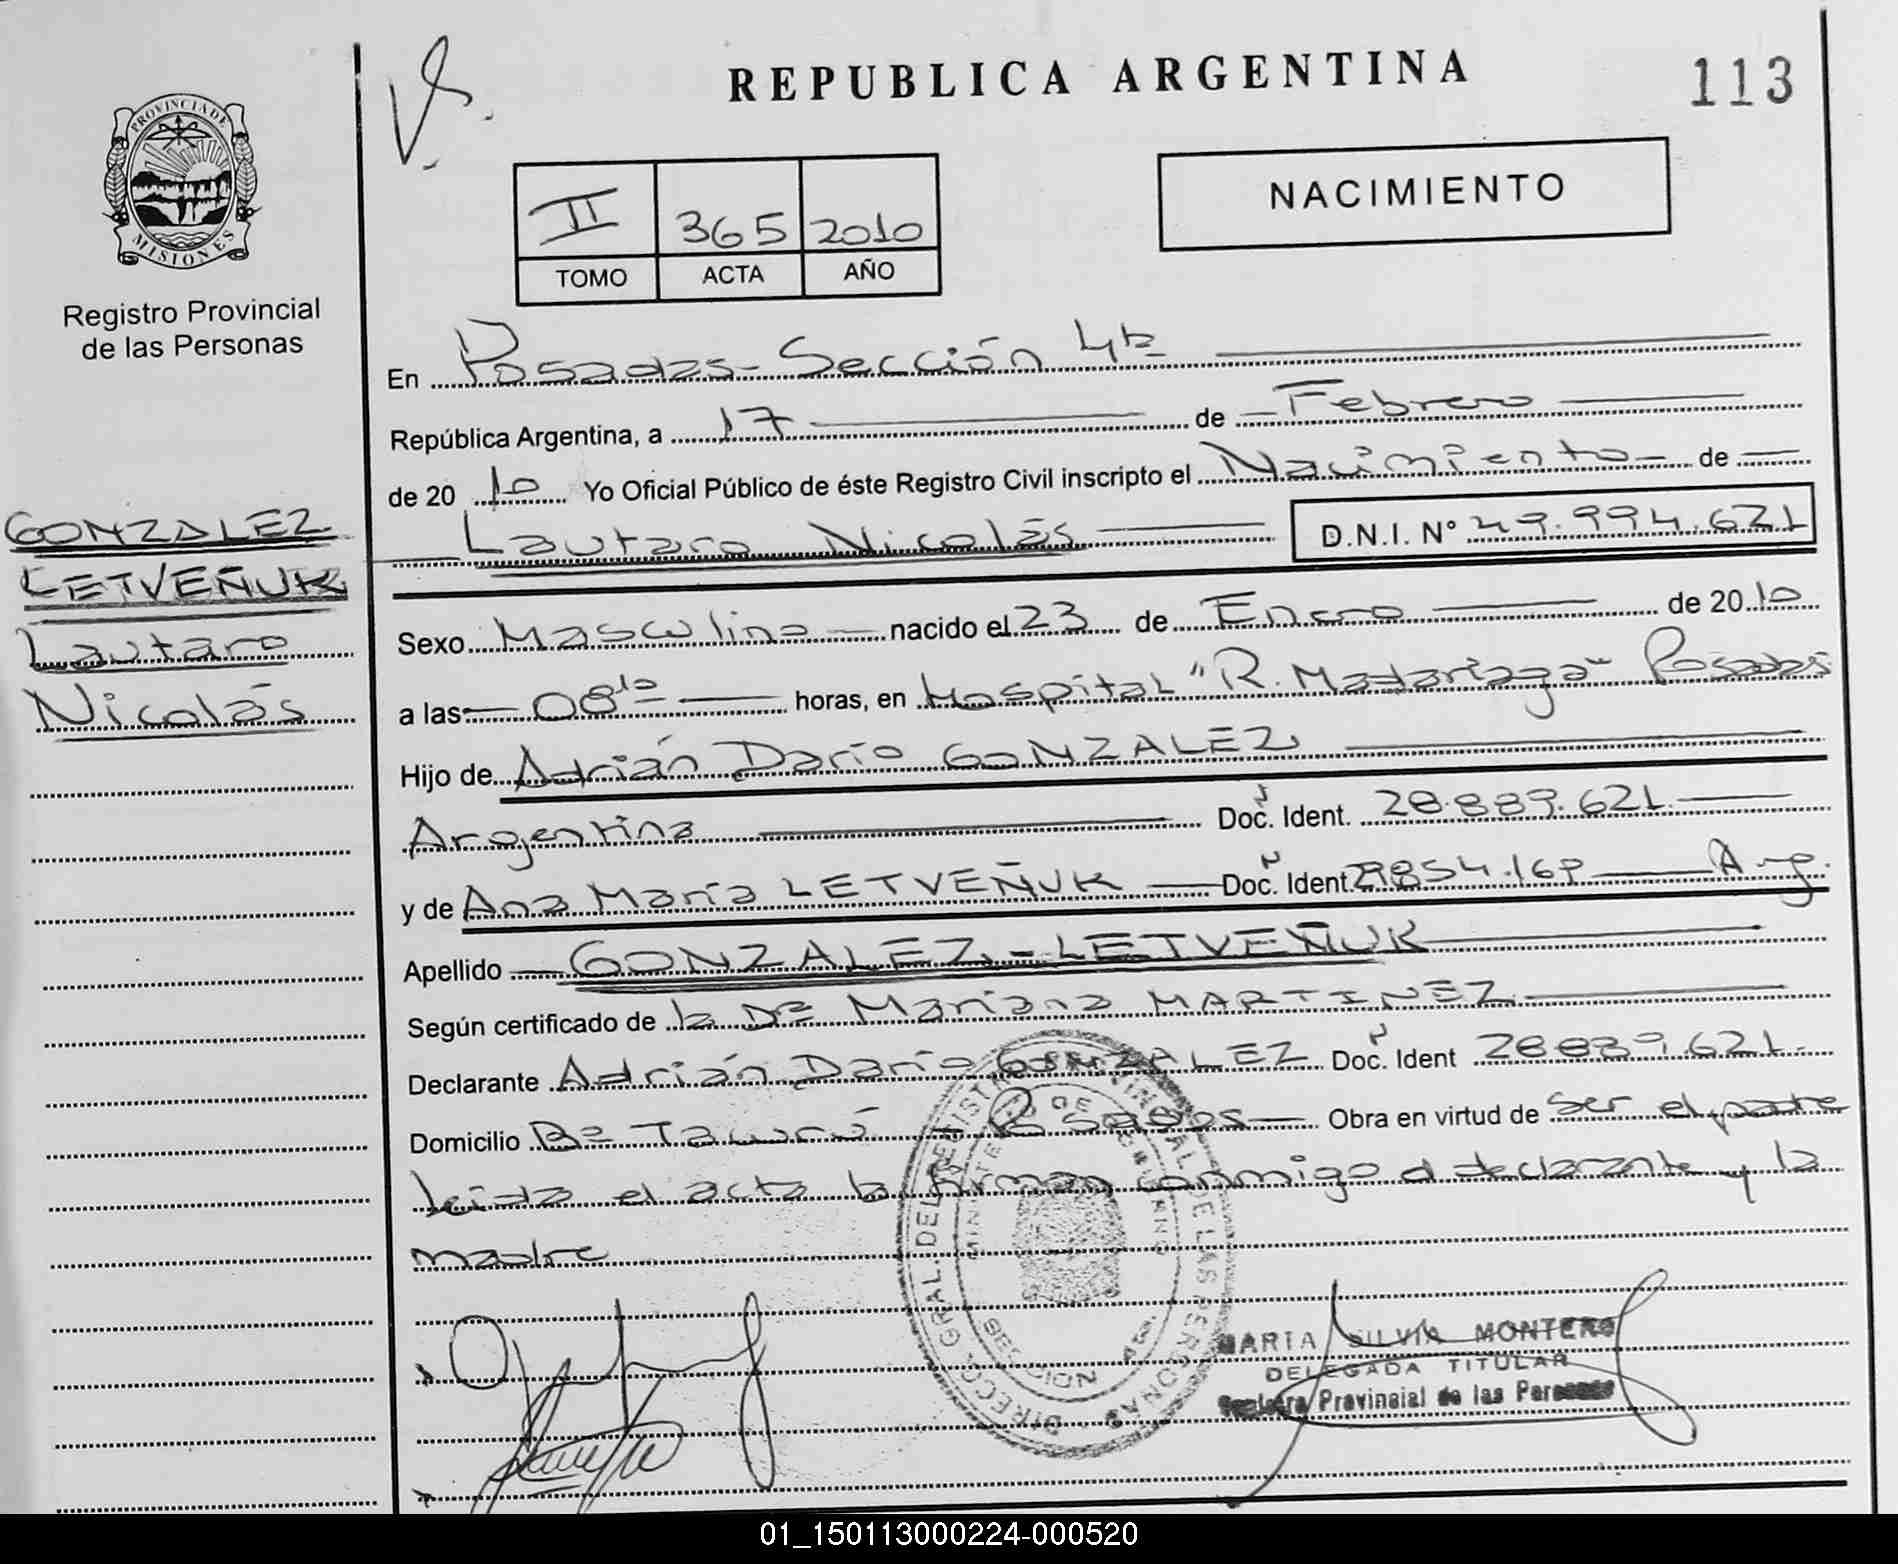 REPUBLICA ARGENTINA
113
PROVINCIA DE
MISIONES
Registro Provincial
de las Personas
NACIMIENTO
II 365 2010
TOMO ACTA AÑO
En Posadas - Sección 4ta
República Argentina, a 17 de Febrero
de 2010 Yo Oficial Público de éste Registro Civil inscripto el Nacimiento de
Lautaro Nicolás D.N.I. Nº 49.994.621
GONZALEZ
LETVEÑUK
Lautaro
Nicolás
Sexo Masculino nacido el 23 de Enero de 2010
a las 08 10 horas, en Hospital "R. Madariaga" Posadas
Hijo de Adrián Darío GONZALEZ
Argentina Doc. Ident. 28.889.621
y de Ana María LETVEÑUK Doc. Ident. Arg.
Apellido GONZALEZ - LETVEÑUK
Según certificado de la Dra Mariana MARTINEZ
Declarante Adrián Darío GONZALEZ Doc. Ident 28889.621
Domicilio Bº Tacurú - Posadas Obra en virtud de ser el padre
leída el acta la firman conmigo el declarante y la
madre
DIRECC. GRAL. DEL REGISTRO PROVINCIAL DE LAS PERSONAS
SECCION 4ta.
MARTA SILVIA MONTERO
DELEGADA TITULAR
Registro Provincial de las Personas
01_150113000224-000520